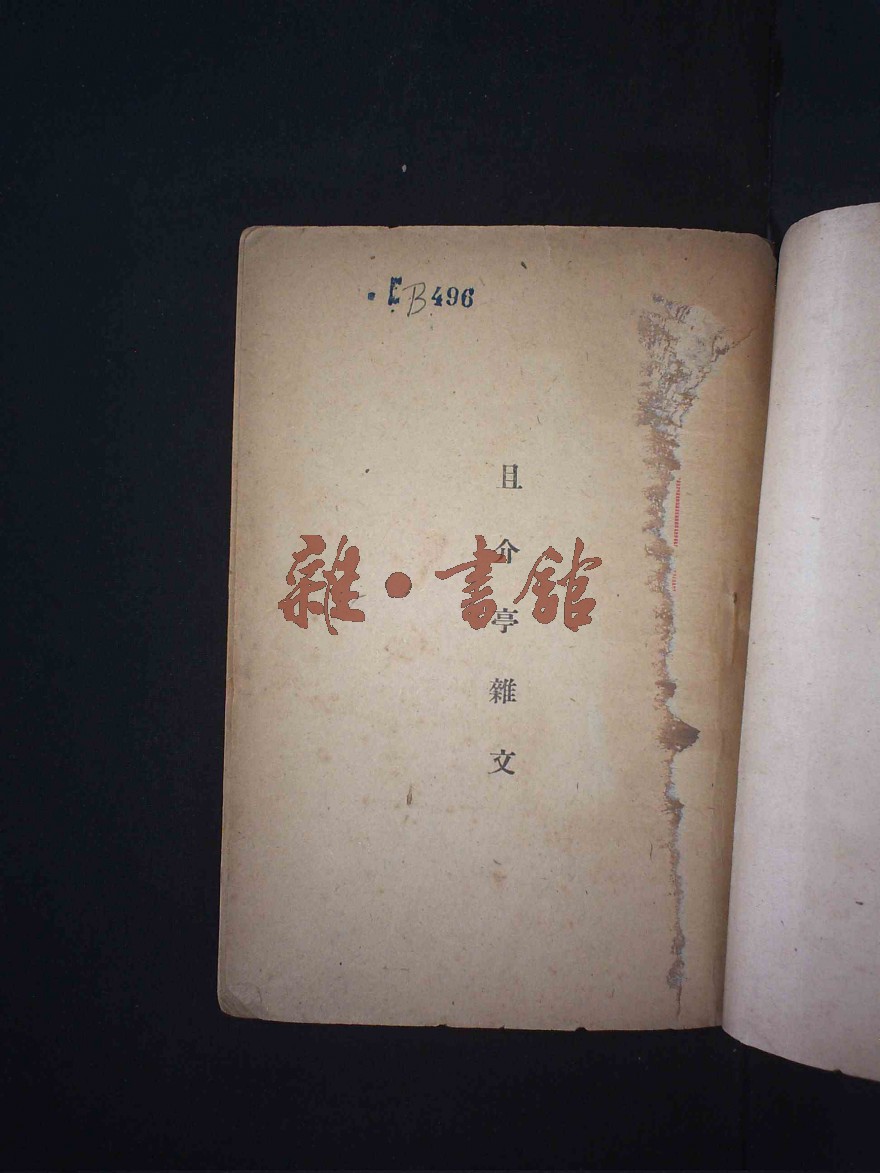 B496
且介亭雜文
雜·書館